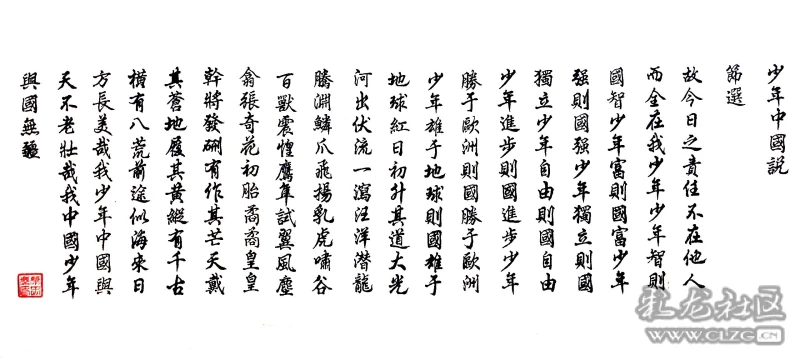 少年中國説
節選
故今日之責任不在他人
而全在我少年少年智則
國智少年富則國富少年
强則國强少年獨立則國
獨立少年自由則國自由
少年進步則國進步少年
勝于歐洲則國勝于歐洲
少年雄于地球則國雄于
地球紅日初升其道大光
河出伏流一瀉汪洋潛龍
騰淵鱗爪飛揚乳虎嘯谷
百獸震惶鷹隼試翼風塵
翕張奇花初胎矞矞皇皇
幹將發硎有作其芒天戴
其蒼地履其黃縱有千古
橫有八荒前途似海來日
方長美哉我少年中國與
天不老壯哉我中國少年
與國無疆
米龙社区
www.CLZG.cn